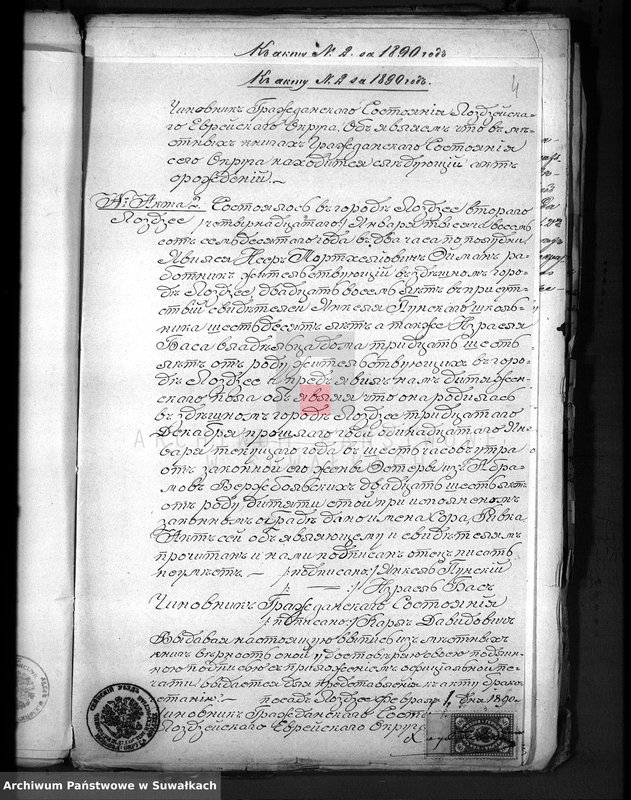 Къ акту №. 2. за 1890 годъ
Къ акту №. 2 за 1890 годъ.
4
Чиновникъ Гражданскаго Состоянія Лоздзейска-
го Еврейскаго Округа. Объявляемъ что въ мѣ-
стныхъ книгахъ Гражданскаго Состоянія
сего Округа находится слѣдующій актъ
о рожденіи.—
№ Акта 2. Состоялось въ городѣ Лоздзее второго
Лоздзее /четырнадцатаго/ Января тысяча восемь
сотъ семьдесятаго года въ два часа по полудни
Явился Іосръ Мортхелевичъ Ойманъ ра-
ботникъ жительствующій въ здѣшномъ горо-
дѣ Лоздзее, двадцать восемь лѣтъ въ присут-
ствіи свидѣтелей Янкеля Пунскаго школь-
ника шестьдесятъ лѣтъ а также Израеля
Баса владѣльца дома тридцать шесть
лѣтъ отъ роду жительствующихъ въ горо-
дѣ Лоздзее и предъявилъ намъ дитя жен-
скаго пола объявляя что она родилась
въ здѣшномъ городѣ Лоздзее тридцатаго
Декабря прошлаго года одинадцатаго Ян-
варя текущаго года въ шесть часовъ утра
отъ законной его жены Эстеры изъ Абра-
мовъ Вержболовскихъ двадцать шесть лѣтъ
отъ роду дитяти этой при исполненомъ
законнымъ обрадѣ дано имена Хора, Ривка.
Актъ сей объявляющему и свидѣтелямъ
прочтанъ и нами подписанъ отецъ писать
неумѣетъ.— /:подписано:/ Янкель Пунскій
/: — :/ Израель Басъ
Чиновникъ Гражданскаго Состоянія
/:подписано:/ Карлъ Давидовичъ
Выдавая настоящую выпись изъ мѣстныхъ
книгъ вѣрность оной удостовѣряю своею подлин-
ною подписью съ приложеніемъ официальной пе-
чати, выдается для представленія къ акту брако-
сочетанія:— посадъ Лоздзее Февраля 1 дня 1890.
Чиновникъ Гражданскаго Состоянія
Лоздзейскаго Еврейскаго Округа
Archiwum Państwowe w Suwałkach